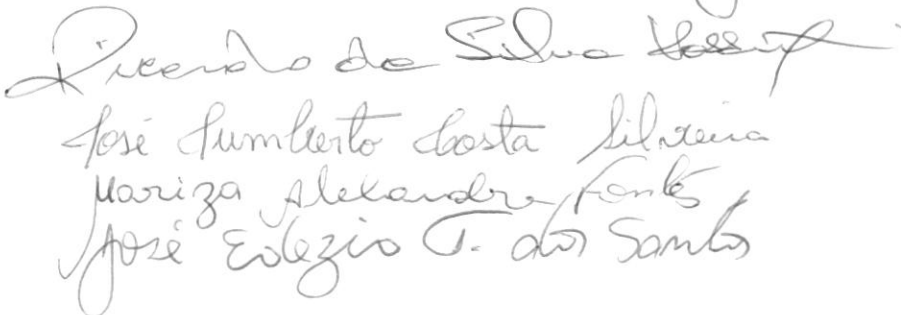 Ricardo da Silva
José Humberto Costa Silveira
Mariza Alexandre Fontes
José T. dos Santos